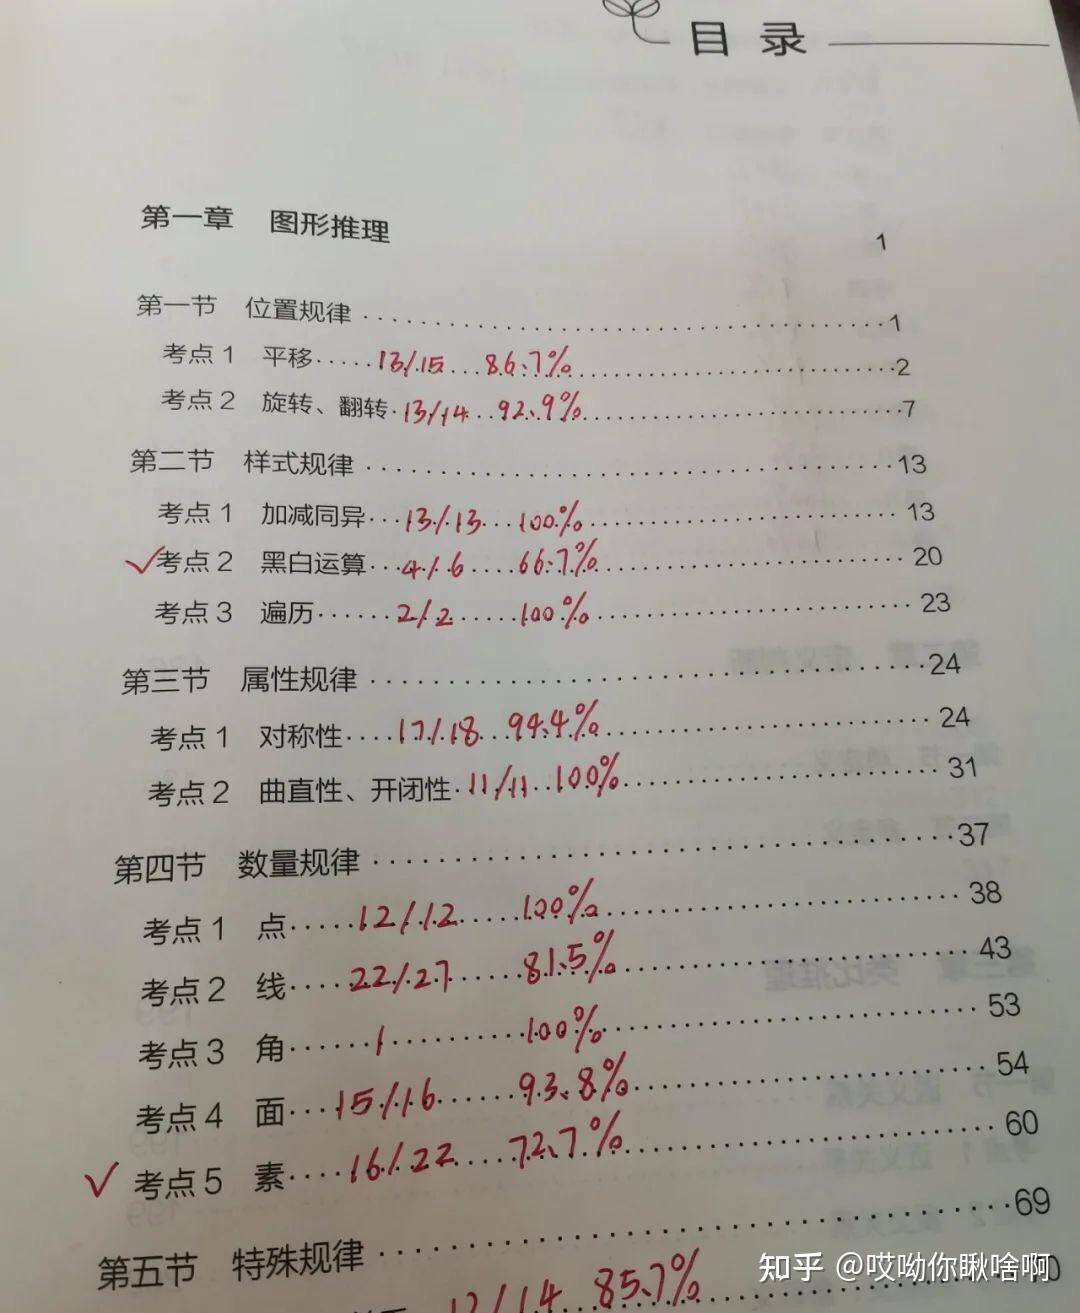 目录
第一章 图形推理 1
第一节 位置规律 1
考点1 平移 13/15 86.7% 2
考点2 旋转、翻转 13/14 92.9% 7
第二节 样式规律 13
考点1 加减同异 13/13 100% 13
✓考点2 黑白运算 4/6 66.7% 20
考点3 遍历 2/2 100% 23
第三节 属性规律 24
考点1 对称性 17/18 94.4% 24
考点2 曲直性、开闭性 11/11 100% 31
第四节 数量规律 37
考点1 点 12/12 100% 38
考点2 线 22/27 81.5% 43
考点3 角 1 100% 53
考点4 面 15/16 93.8% 54
✓考点5 素 16/22 72.7% 60
第五节 特殊规律 69
12/14 85.7%
知乎 @哎呦你瞅啥啊